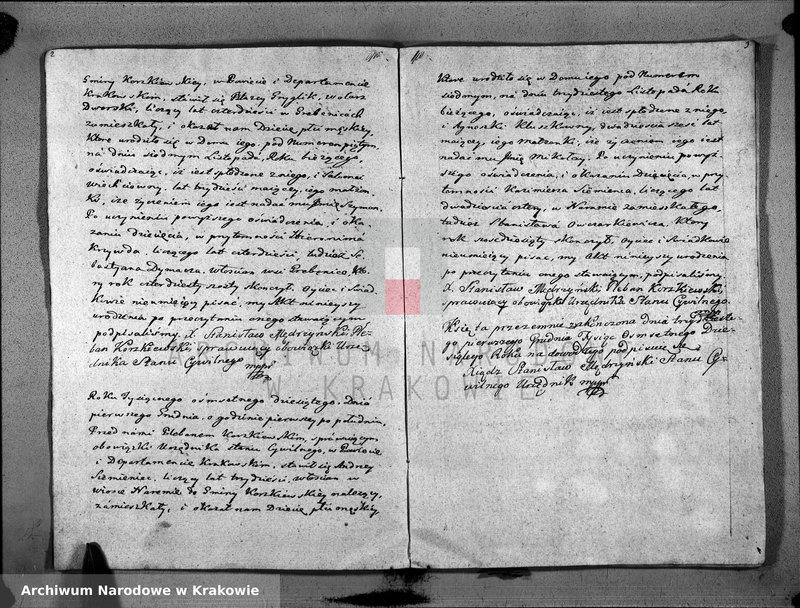 2
Gminy Korzkiewskiey, w Powiecie i Departamencie
Krakowskim, stawił się Błażey Gryglik, włodarz
Dworski, liczący lat czterdzieści w Grębenicach
zamieszkały, i okazał nam Dziecię płci męskiey,
które urodziło się w Domu iego pod Numerem piątym,
na dniu siodmym Listopada, Roku bieżącego,
oświadczaiąc, iż iest spłodzone z niego, i Salomei
lat trzydzieści maiącey, iego małżon-
ki, iże życzeniem iego iest nadać mu Imię Szymon.
Po uczynieniu powyższego oświadczenia, i oka-
zaniu dziecięcia, w przytomności Hieronima
Krzywda, liczącego lat czterdzieści, tudzież Se-
bastyana Dymacza, Włościan wsi Grębenice, któ-
ry rok czterdziesty szosty skończył. Oyciec i Świad-
kowie nieumieiący pisać, my Akt ninieyszy
urodzenia po przeczytaniu onego stawaiącym
podpisaliśmy. X. Stanisław Mędrzyński Ple-
ban Korzkiewski, sprawuiący obowiązki Urzę-
dnika Stanu Cywilnego mpp
Roku Tysiącznego ośmsetnego dziesiątego, Dnia
pierwszego Grudnia, o godzinie pierwszey po południu,
Przed nami Plebanem Korzkiewskim, sprawuiącym
obowiązki Urzędnika stanu Cywilnego, w Powiecie
i Departamencie Krakowskim, stawił się Andrzey
Siemieniec, liczący lat trzydzieści, włościan w
wiosce Naramie do Gminy Korzkiewskiey należącey,
zamieszkały, i okazał nam Dziecię płci męskiey
3
które urodziło się w Domu iego pod Numerem
siodmym, na dniu trzydziestego Listopada Roku
bieżącego, oświadczaiąc, iż iest spłodzone z niego
i Agnieszki Kluskowny, dwadzieścia sześć lat
maiącey, iego małżonki, iże życzeniem iego iest
nadać mu Imię Mikołay. Po uczynieniu powyż-
szego oświadczenia, i okazaniu Dziecięcia, w przy-
tomności Kazimierza Siemieńca, liczącego lat
dwadzieścia cztery, w Naramie zamieszkałego,
tudzież Stanisława Owczarkiewicza, który
rok sześćdziesiąty skończył, Oyciec i Świadkowie
nieumieiący pisać, my Akt ninieyszy urodzenia
po przeczytaniu onego stawaiącym, podpisaliśmy.
X. Stanisław Mędrzyński, Pleban Korzkiewski,
sprawuiący obowiązki Urzędnika Stanu Cywilnego.
Księga przezemnie zakończona Dnia trzydzieste-
go pierwszego Grudnia Tysiąc Osmsetnego Dzie-
siątego Roku na dowód tego podpisuię się
Xiądz Stanisław Mędrzyński Stanu Cy-
wilnego Urzędnik mpp
ARCHIWUM NARODOWE
W KRAKOWIE
Archiwum Narodowe w Krakowie